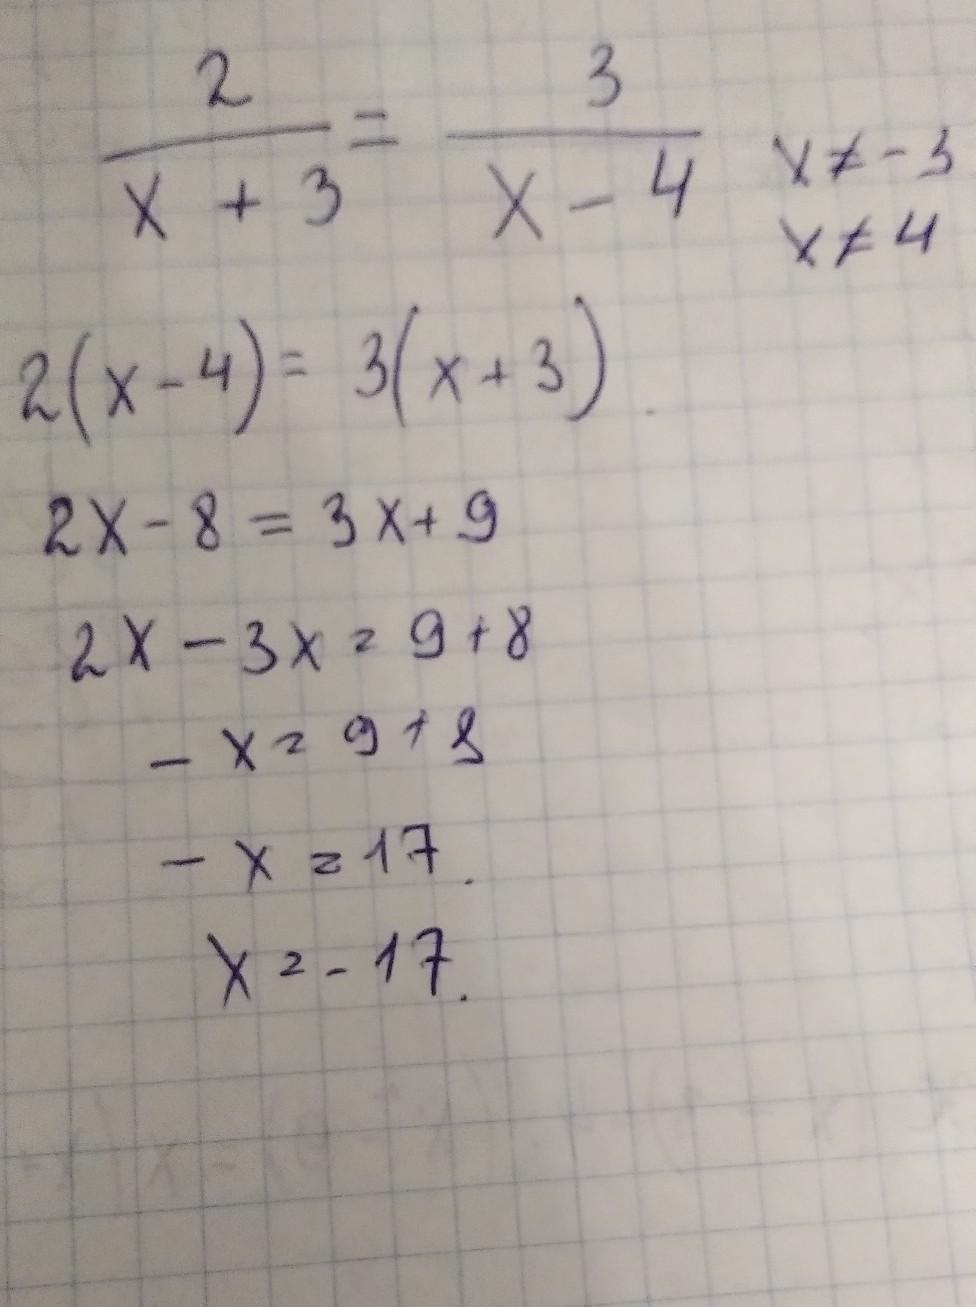 2/(x + 3) = 3/(x - 4) x ≠ -3
x ≠ 4
2(x - 4) = 3(x + 3).
2x - 8 = 3x + 9
2x - 3x = 9 + 8
- x = 9 + 8
- x = 17.
x = - 17.